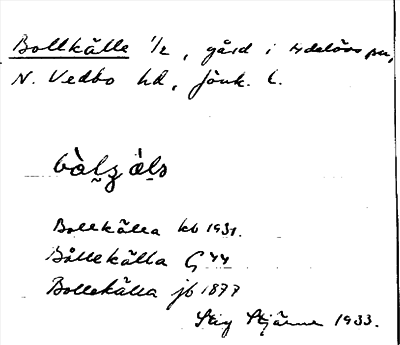 Bollkälle 1/2, gård i Adelövs sn,
N. Vedbo hd, Jönk. l.
Bollekälla kb 1931.
Bållekälla G 44
Bollekälla jb 1877
Stig Stjärne 1933.